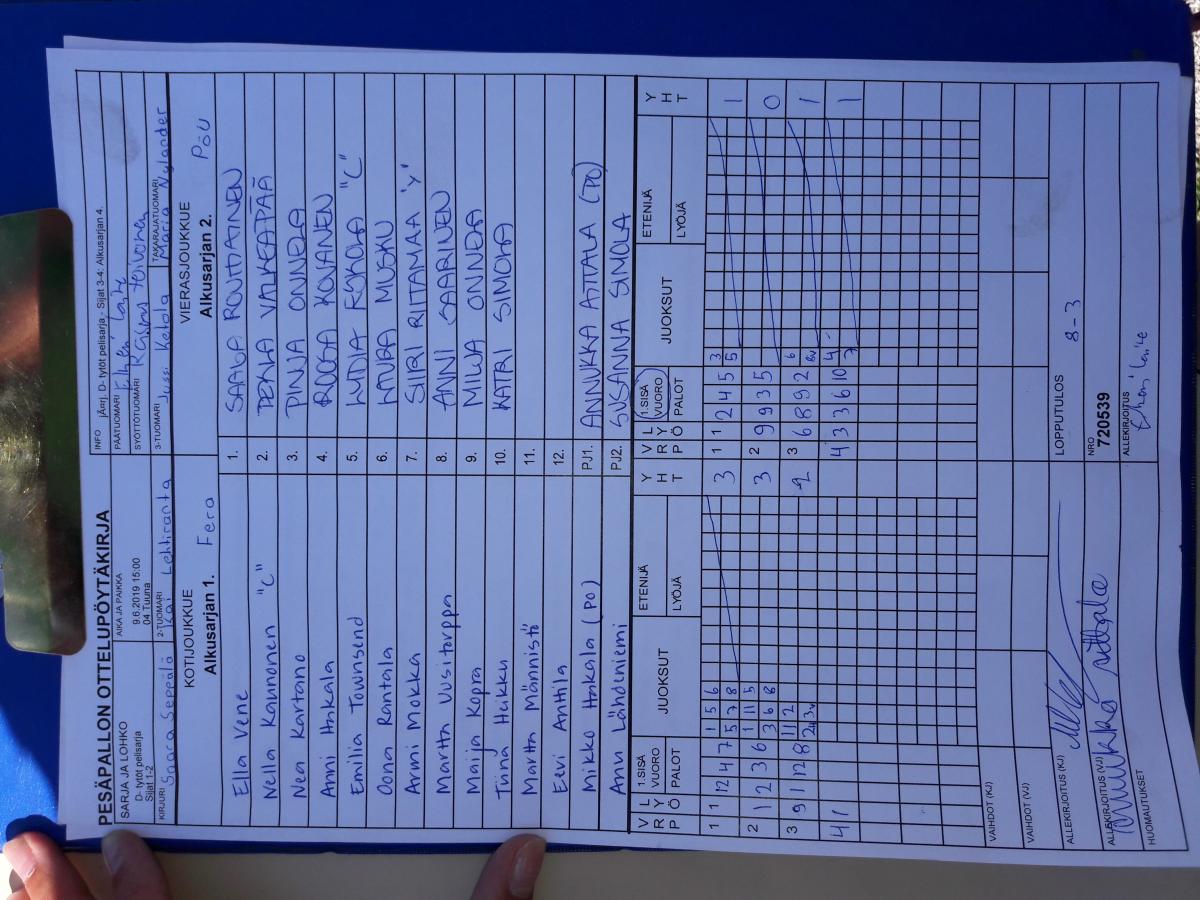 PESÄPALLON OTTELUPÖYTÄKIRJA
SARJA JA LOHKO
D- tytöt pelisarja
Sijat 1-2
AIKA JA PAIKKA
9.6.2019 15:00
04 Tuuna
INFO jÄnrj. D- tytöt pelisarja - Sijat 3-4: Alkusarjan 4.
PÄÄTUOMARI
SYÖTTÖTUOMARI Rasmus
KIRJURI Saara Seppälä
2-TUOMARI Kai Lehtiranta
3-TUOMARI Jussi Ketola
TAKARAJATUOMARI Maria Nylander
KOTIJOUKKUE
Alkusarjan 1. Fera
VIERASJOUKKUE
Alkusarjan 2. PöU
Ella Vene 1. SAANA ROUTIAINEN
Nella Kaunonen "C" 2. VALKEAPÄÄ
Nea Kartano 3. PINJA ONNELA
Anni Hakala 4. ROOSA
Emilia Townsend 5. "C"
Oona Rantala 6. LAURA MUSKU
Armi Mokka 7. SIIRI RIITAMAA "Y"
Martta Uusitorppa 8. ANNI SAARINEN
Maija Kopra 9. ONNELA
Tiina Heikku 10. KATRI
Martta Männistö 11.
Eevi Anttila 12.
Mikko Hakala (PO) PJ1. ANNUKKA AITTALA (PO)
Anu Lähdeniemi PJ2. SUSANNA SIMOLA
VRP LYÖ 1.SISÄ VUORO PALOT JUOKSUT ETENIJÄ LYÖJÄ YHT
VRP LYÖ 1.SISÄ VUORO PALOT JUOKSUT ETENIJÄ LYÖJÄ YHT
1 1 12 4 7 1 5 6 3 1 1 2 4 5 3 1
5 7 8 5
2 1 2 3 6 1 11 5 3 2 9 9 3 5 0
3 6 8
3 9 11 12 8 11 2 2 3 6 8 9 2 6 1
4 1 4 3 3 6 10 4 1
7
VAIHDOT (KJ)
VAIHDOT (VJ)
ALLEKIRJOITUS (KJ)
LOPPUTULOS 8-3
ALLEKIRJOITUS (VJ)
NRO
720539
HUOMAUTUKSET
ALLEKIRJOITUS